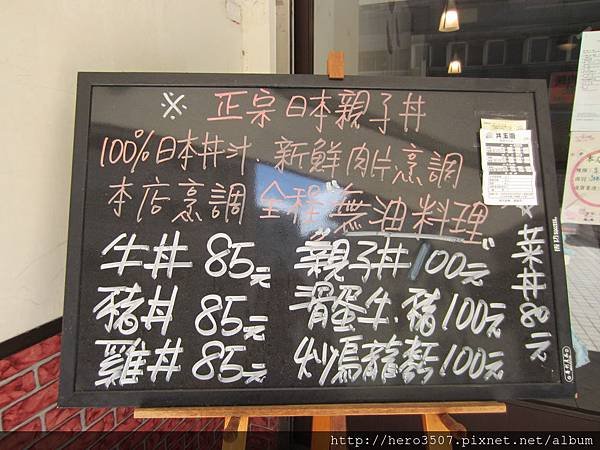 ※ 正宗日本親子丼
100%日本丼汁．新鮮肉片烹調
本店烹調 全程"無油料理"
牛丼 85元
親子丼 100元
豬丼 85元
滑蛋牛.豬100元
雞丼 85元
炒烏龍麵.100元
※菜丼80元
http://hero3507.pixnet.net/album